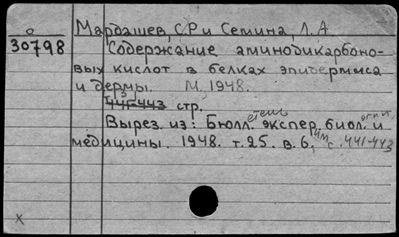 о
30798
Мардашев, С.Р и Семина, Л.А
Содержание аминодикарбоно-
вых кислот в белках эпидермиса
и дермы. М, 1948.
441-443 стр.
Вырез. из: Бюлл. экспер. биол. и
медицины. 1948. т.25. в.6, с. 441-443
х